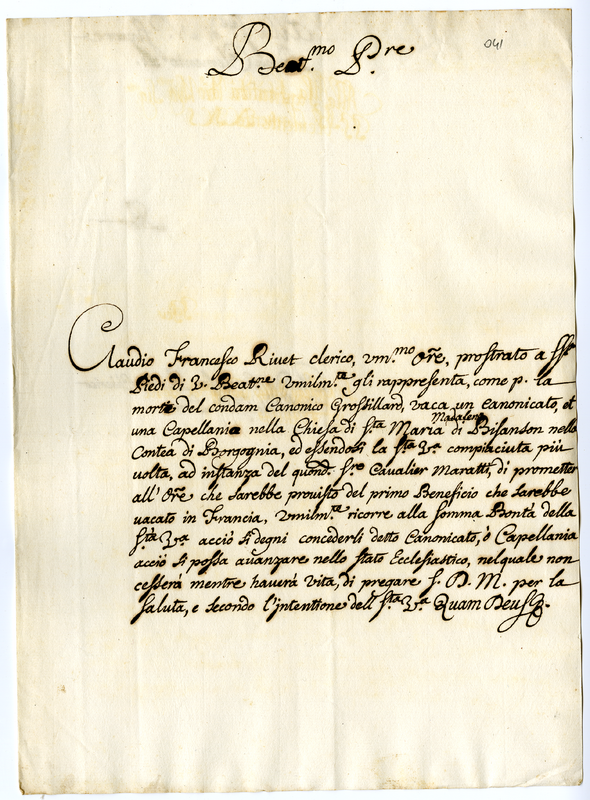 041
Beat.mo P.re
Claudio Francesco Rivet clerico, vm.mo Ore, prostrato a SSi
Piedi di V. Beat.ne vmilm.ta gli rappresenta, come p. la
morte del condam Canonico Grossillard, vaca un canonicato, et
Madalena
una Capellania nella Chiesa di S.ta Maria di Bisanson nella
Contea di Borgognia, ed essendosi la S.ta V.a compiaciuta più
volta, ad instanza del quond. S.re Cavalier Maratti, di prometter
all' Ore che sarebbe provisto del primo Beneficio che sarebbe
vacato in Francia, vmilm.ta ricorre alla somma Bontà della
S.ta V.a acciò si degni concederli detto Canonicato, ò Capellania
acciò si possa avanzare nello stato Ecclesiastico, nel quale non
cesserà mentre haverà vita, di pregare S. D. M. per la
saluta, e secondo l'intentione dell S.ta V.a Quam Deus